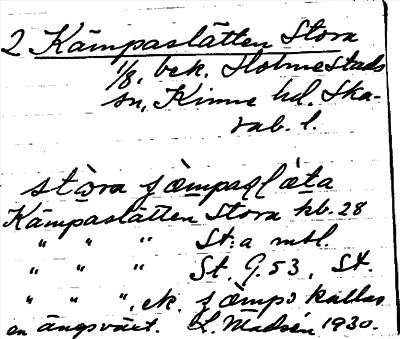 2 Kämpaslätten Stora
1/8, bek. Holmestads
sn, Kinne hd. Ska-
rab. l.
stòra ɟæ̀mpaslæ̀ta
Kämpaslätten Stora hb. 28
" " " St:a mtl.
" " " St. G.53, St.
" " ", ek.
en ängsväxt. L. Madsén 1930.